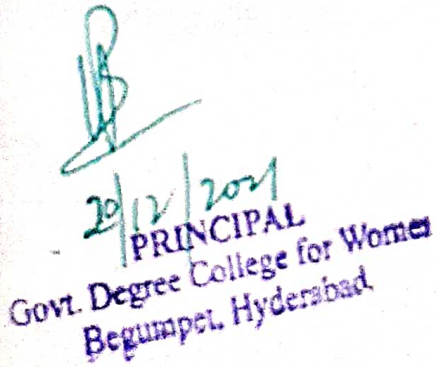 20/12/2021
PRINCIPAL
Govt. Degree College for Women
Begumpet, Hyderabad.